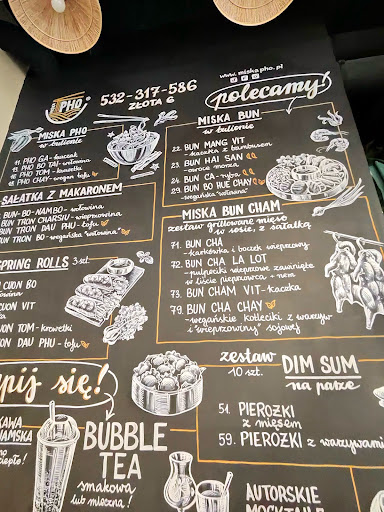 PHO
532-317-586
ZŁOTA 6
www.miskapho.pl
polecamy!
MISKA PHO
w bulionie
11. PHO GA - kurczak
PHO BO TAI - wołowina
PHO TOM - krewetki
PHO CHAY - vegan tofu
SAŁATKA Z MAKARONEM
BUN BO NAMBO - wołowina
BUN TRON CHARSIU - wieprzowina
BUN TRON DAU PHU - tofu
BUN TRON BO - wegańska "wołowina"
SPRING ROLLS 3 szt.
CUON BO
wołowina
CUON VIT
CUON TOM - krewetki
CUON DAU PHU - tofu
pij się!
KAWA
BUBBLE
TEA
smakowa
lub mleczna!
MISKA BUN
w bulionie
22. BUN MANG VIT
- kaczka z bambusem
23. BUN HAI SAN
- owoce morza
24. BUN CA - ryba
29. BUN BO HUE CHAY
- wegańska "wołowina"
MISKA BUN CHAM
zestaw grillowane mięso
w sosie, z sałatką
71. BUN CHA
- karkówka i boczek wieprzowy
72. BUN CHA LA LOT
- pulpeciki wieprzowe zawinięte
w liście pieprzowca + nem
73. BUN CHAM VIT - kaczka
79. BUN CHA CHAY
- wegańskie kotleciki z warzyw
i "wieprzowiny" sojowej
zestaw
10 szt.
DIM SUM
na parze
51. PIEROŻKI
z mięsem
59. PIEROŻKI z warzywami
AUTORSKIE
MOCKTAILE